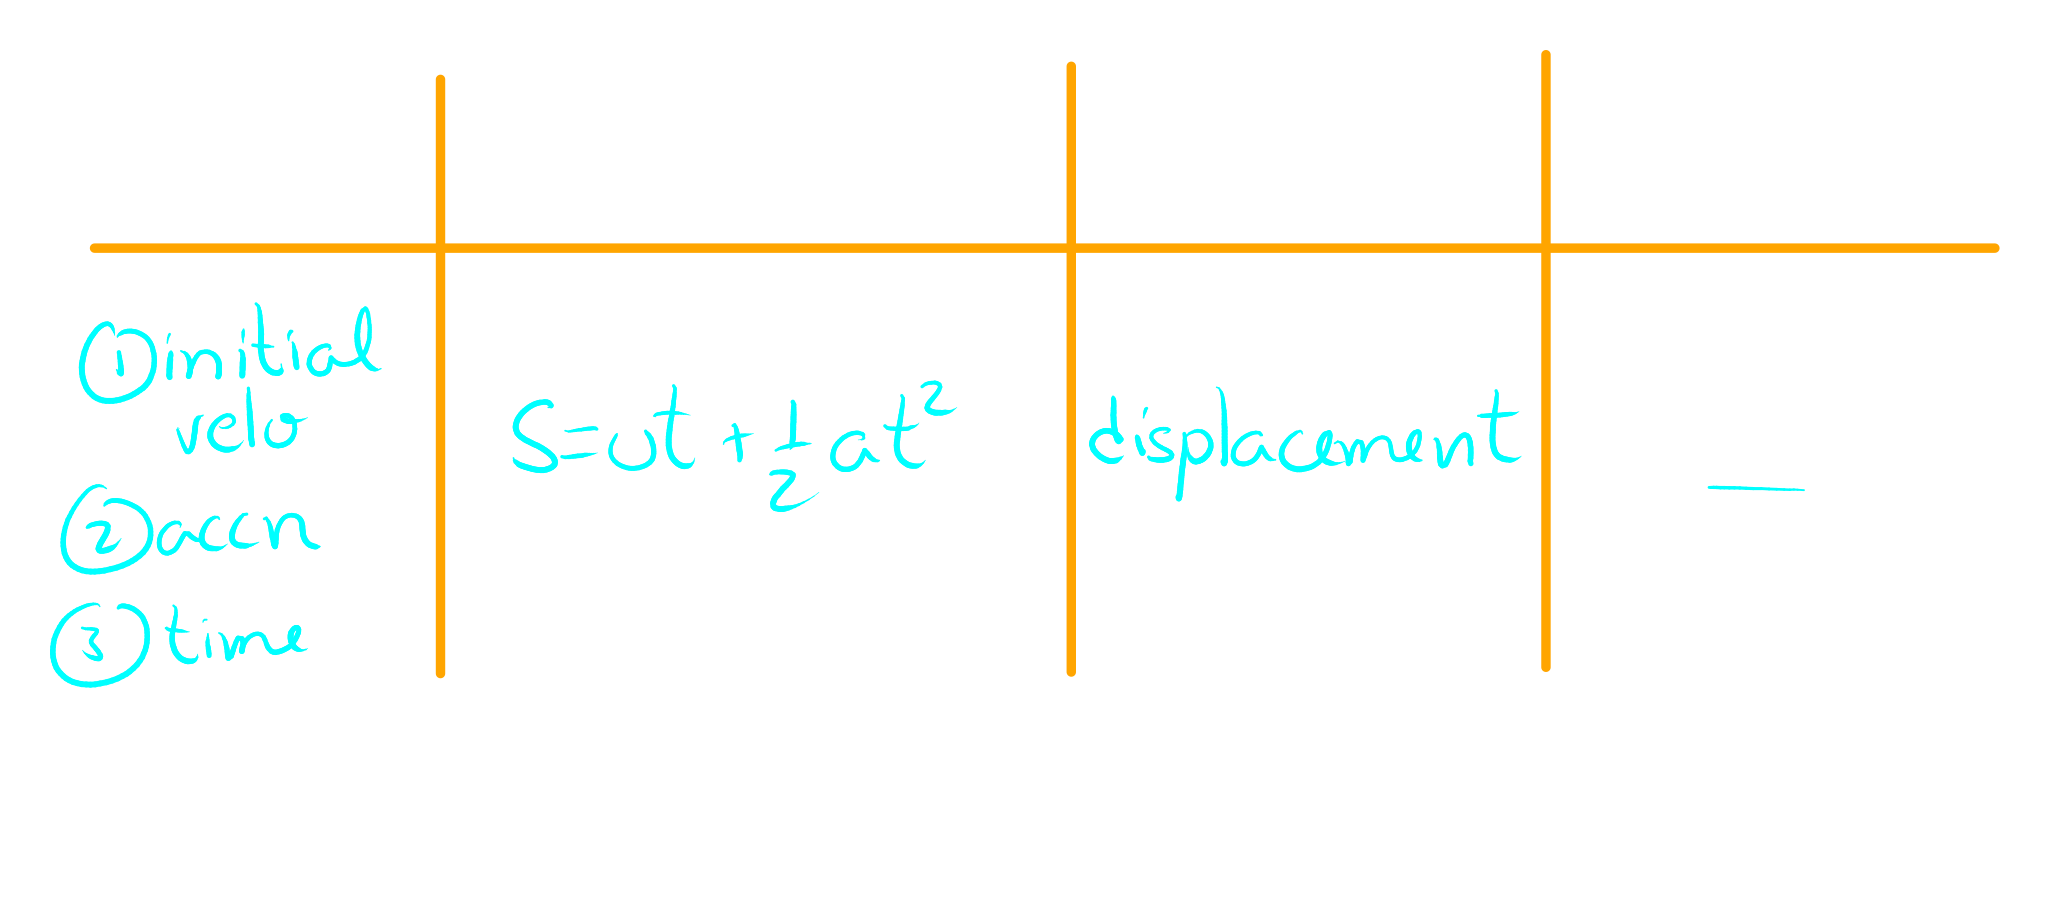 ① initial
velo
② accn
③ time
S=ut + 1/2 at²
displacement
—